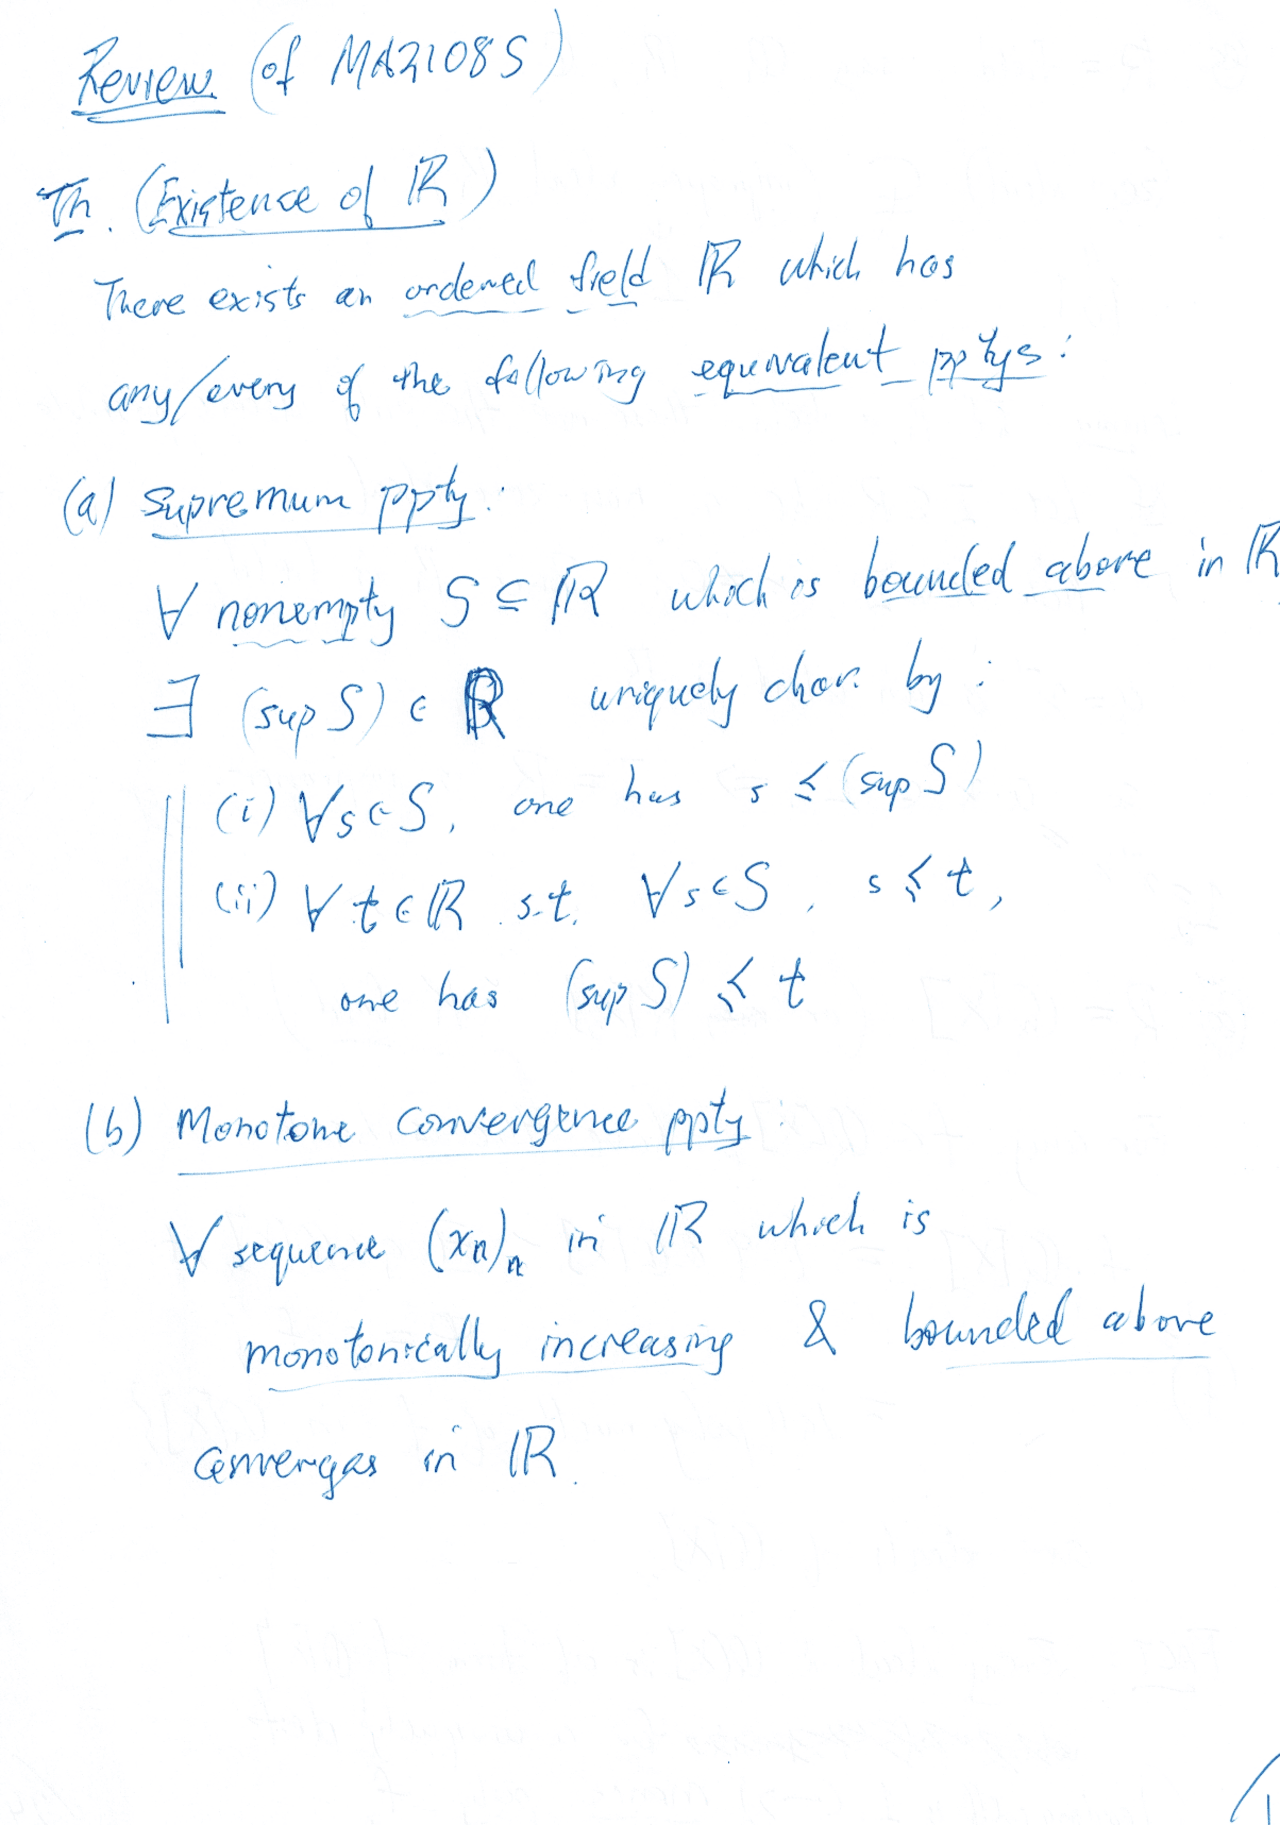 Review (of MA2108S)
Th. (Existence of ℝ)
There exists an ordered field ℝ which has
any/every of the following equivalent pptys:
(a) supremum ppty:
∀ nonempty S ⊆ ℝ which is bounded above in ℝ
∃ (sup S) ∈ ℝ uniquely char. by:
(i) ∀s∈S, one has s ≤ (sup S)
(ii) ∀ t∈ℝ s.t. ∀s∈S, s ≤ t,
one has (sup S) ≤ t
(b) Monotone convergence ppty:
∀ sequence (xₙ)ₙ in ℝ which is
monotonically increasing & bounded above
converges in ℝ.
1